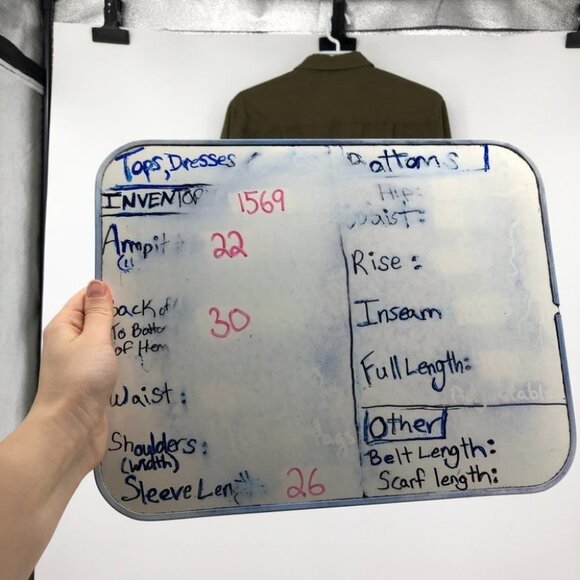 Tops, Dresses
INVENTOR 1569
Armpit: 22
Back of 30
To Botto
of Hem
Waist:
Shoulders:
(width)
Sleeve Leng 26
Bottoms
Hip:
Waist:
Rise:
Inseam
Full Length:
Other
Belt Length:
Scarf length: